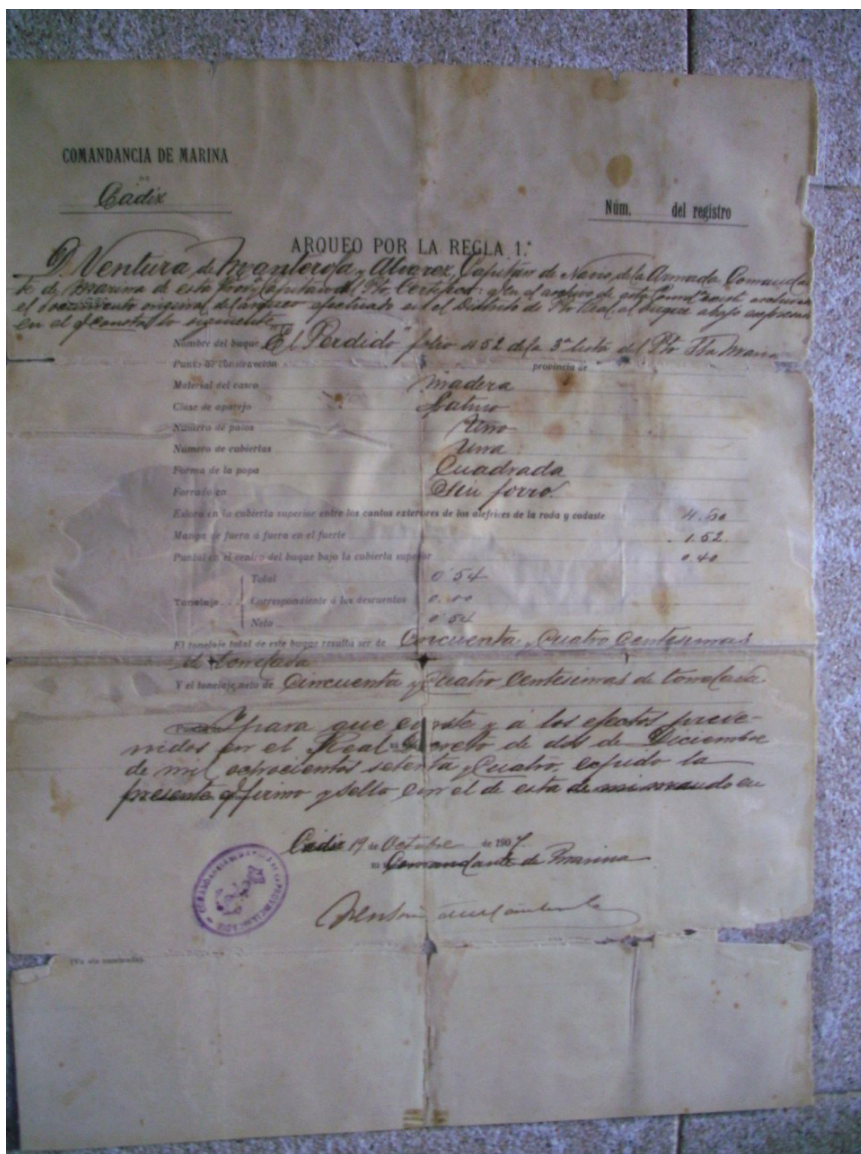 COMANDANCIA DE MARINA
DE
Cádiz
Núm. del registro
ARQUEO POR LA REGLA 1.ª
D. Ventura de Manterola y Alvarez, Capitán de Navio de la Armada, Comandan
te de Marina de esta Provª y Capitan del Pto Certifico: q. en el archivo de esta
el documento original del arqueo efectuado en el Distrito de Pto Real al buque abajo expresa
en el q. consta lo siguiente
Nombre del buque "El Perdido" folio 452 de la 3ª lista del Pto Sta Maria
Punto de construcción provincia de
Material del casco madera
Clase de aparejo
Número de palos Uno
Número de cubiertas Una
Forma de la popa Cuadrada
Forrado en Sin forro.
Eslora en la cubierta superior entre los cantos exteriores de los alefrices de la roda y codaste 4.60
Manga de fuera á fuera en el fuerte 1.52
Puntal en el centro del buque bajo la cubierta superior 0.40
Total 0'54
Tonelaje Correspondiente á los descuentos 0.00
Neto 0'54
El tonelaje total de este buque resulta ser de Cincuenta y Cuatro Centesimas
de tonelada
Y el tonelaje neto de Cincuenta y Cuatro Centesimas de tonelada
y para que conste y á los efectos preve-
nidos en el Real Decreto de dos de Diciembre
de mil ochocientos setenta y Cuatro, expido la
presente q. firmo y sello con el de esta de mi mando en
Cádiz 19 de Octubre de 1907.
Comandante de Marina
(Va sin enmienda)